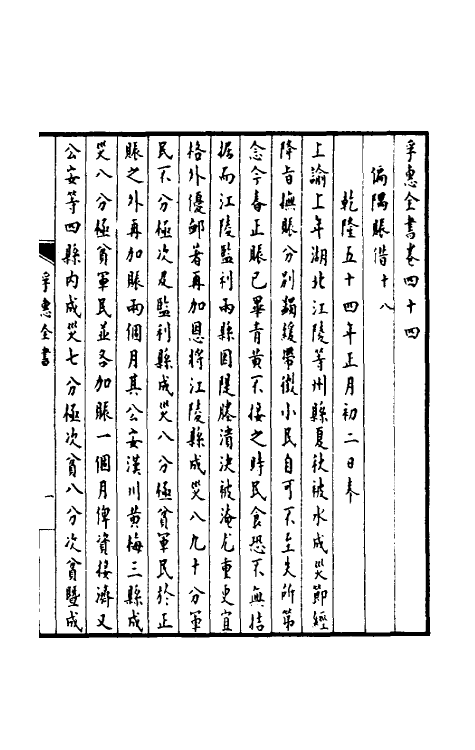 孚惠全書卷四十四
偏隅賬借十八
乾隆五十四年正月初二日奉
上諭上年湖北江陵等州縣夏秋被水成災節經
降旨撫賑分別蠲緩帶徵小民自可不至失所第
念今春正賑已畢青黃不接之時民食恐不無拮
据而江陵監利兩縣因隄塍潰決被淹尤重更宜
格外優卹著再加恩將江陵縣成災八九十分軍
民不分極次及監利縣成災八分極貧軍民於正
賑之外再加賑兩個月其公安漢川黃梅三縣成
災八分極貧軍民並各加賑一個月俾資接濟又
公安等四縣內成災七分極次貧八分次貧暨成
孚惠全書
一